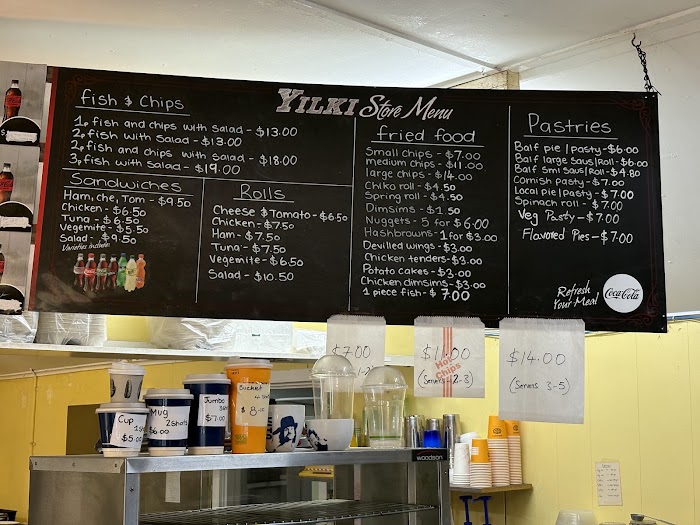 YILKI Store Menu
fish & Chips
1. fish and chips with Salad - $13.00
2. fish with Salad - $13.00
2. fish and chips with Salad - $18.00
3. fish with Salad - $19.00
Sandwiches
Ham, che, Tom - $9.50
Chicken - $6.50
Tuna - $6.50
Vegemite - $5.50
Salad - $9.50
Varieties Include:
Rolls
Cheese & Tomato - $6.50
Chicken - $7.50
Ham - $7.50
Tuna - $7.50
Vegemite - $6.50
Salad - $10.50
fried food
Small chips - $7.00
medium chips - $11.00
large chips - $14.00
Chiko roll - $4.50
Spring roll - $4.50
Dimsims - $1.50
Nuggets - 5 for $6.00
Hashbrowns - 1 for $3.00
Devilled wings - $3.00
Chicken tenders - $3.00
Potato cakes - $3.00
Chicken dimsims - $3.00
1 piece fish - $7.00
Pastries
Balf pie / pasty - $6.00
Balf large Saus/Roll - $6.00
Balf Sml Saus/Roll - $4.80
Cornish pasty - $7.00
Local pie/pasty - $7.00
Spinach roll - $7.00
Veg Pasty - $7.00
Flavored Pies - $7.00
Refresh
Your Meal
Coca-Cola
$7.00
$11.00
Hot
Chips
(Serves 2-3)
$14.00
(Serves 3-5)
Cup
$5.00
Mug
2Shots
$6.00
Jumbo
$7.00
Bucket
$8.00
woodson